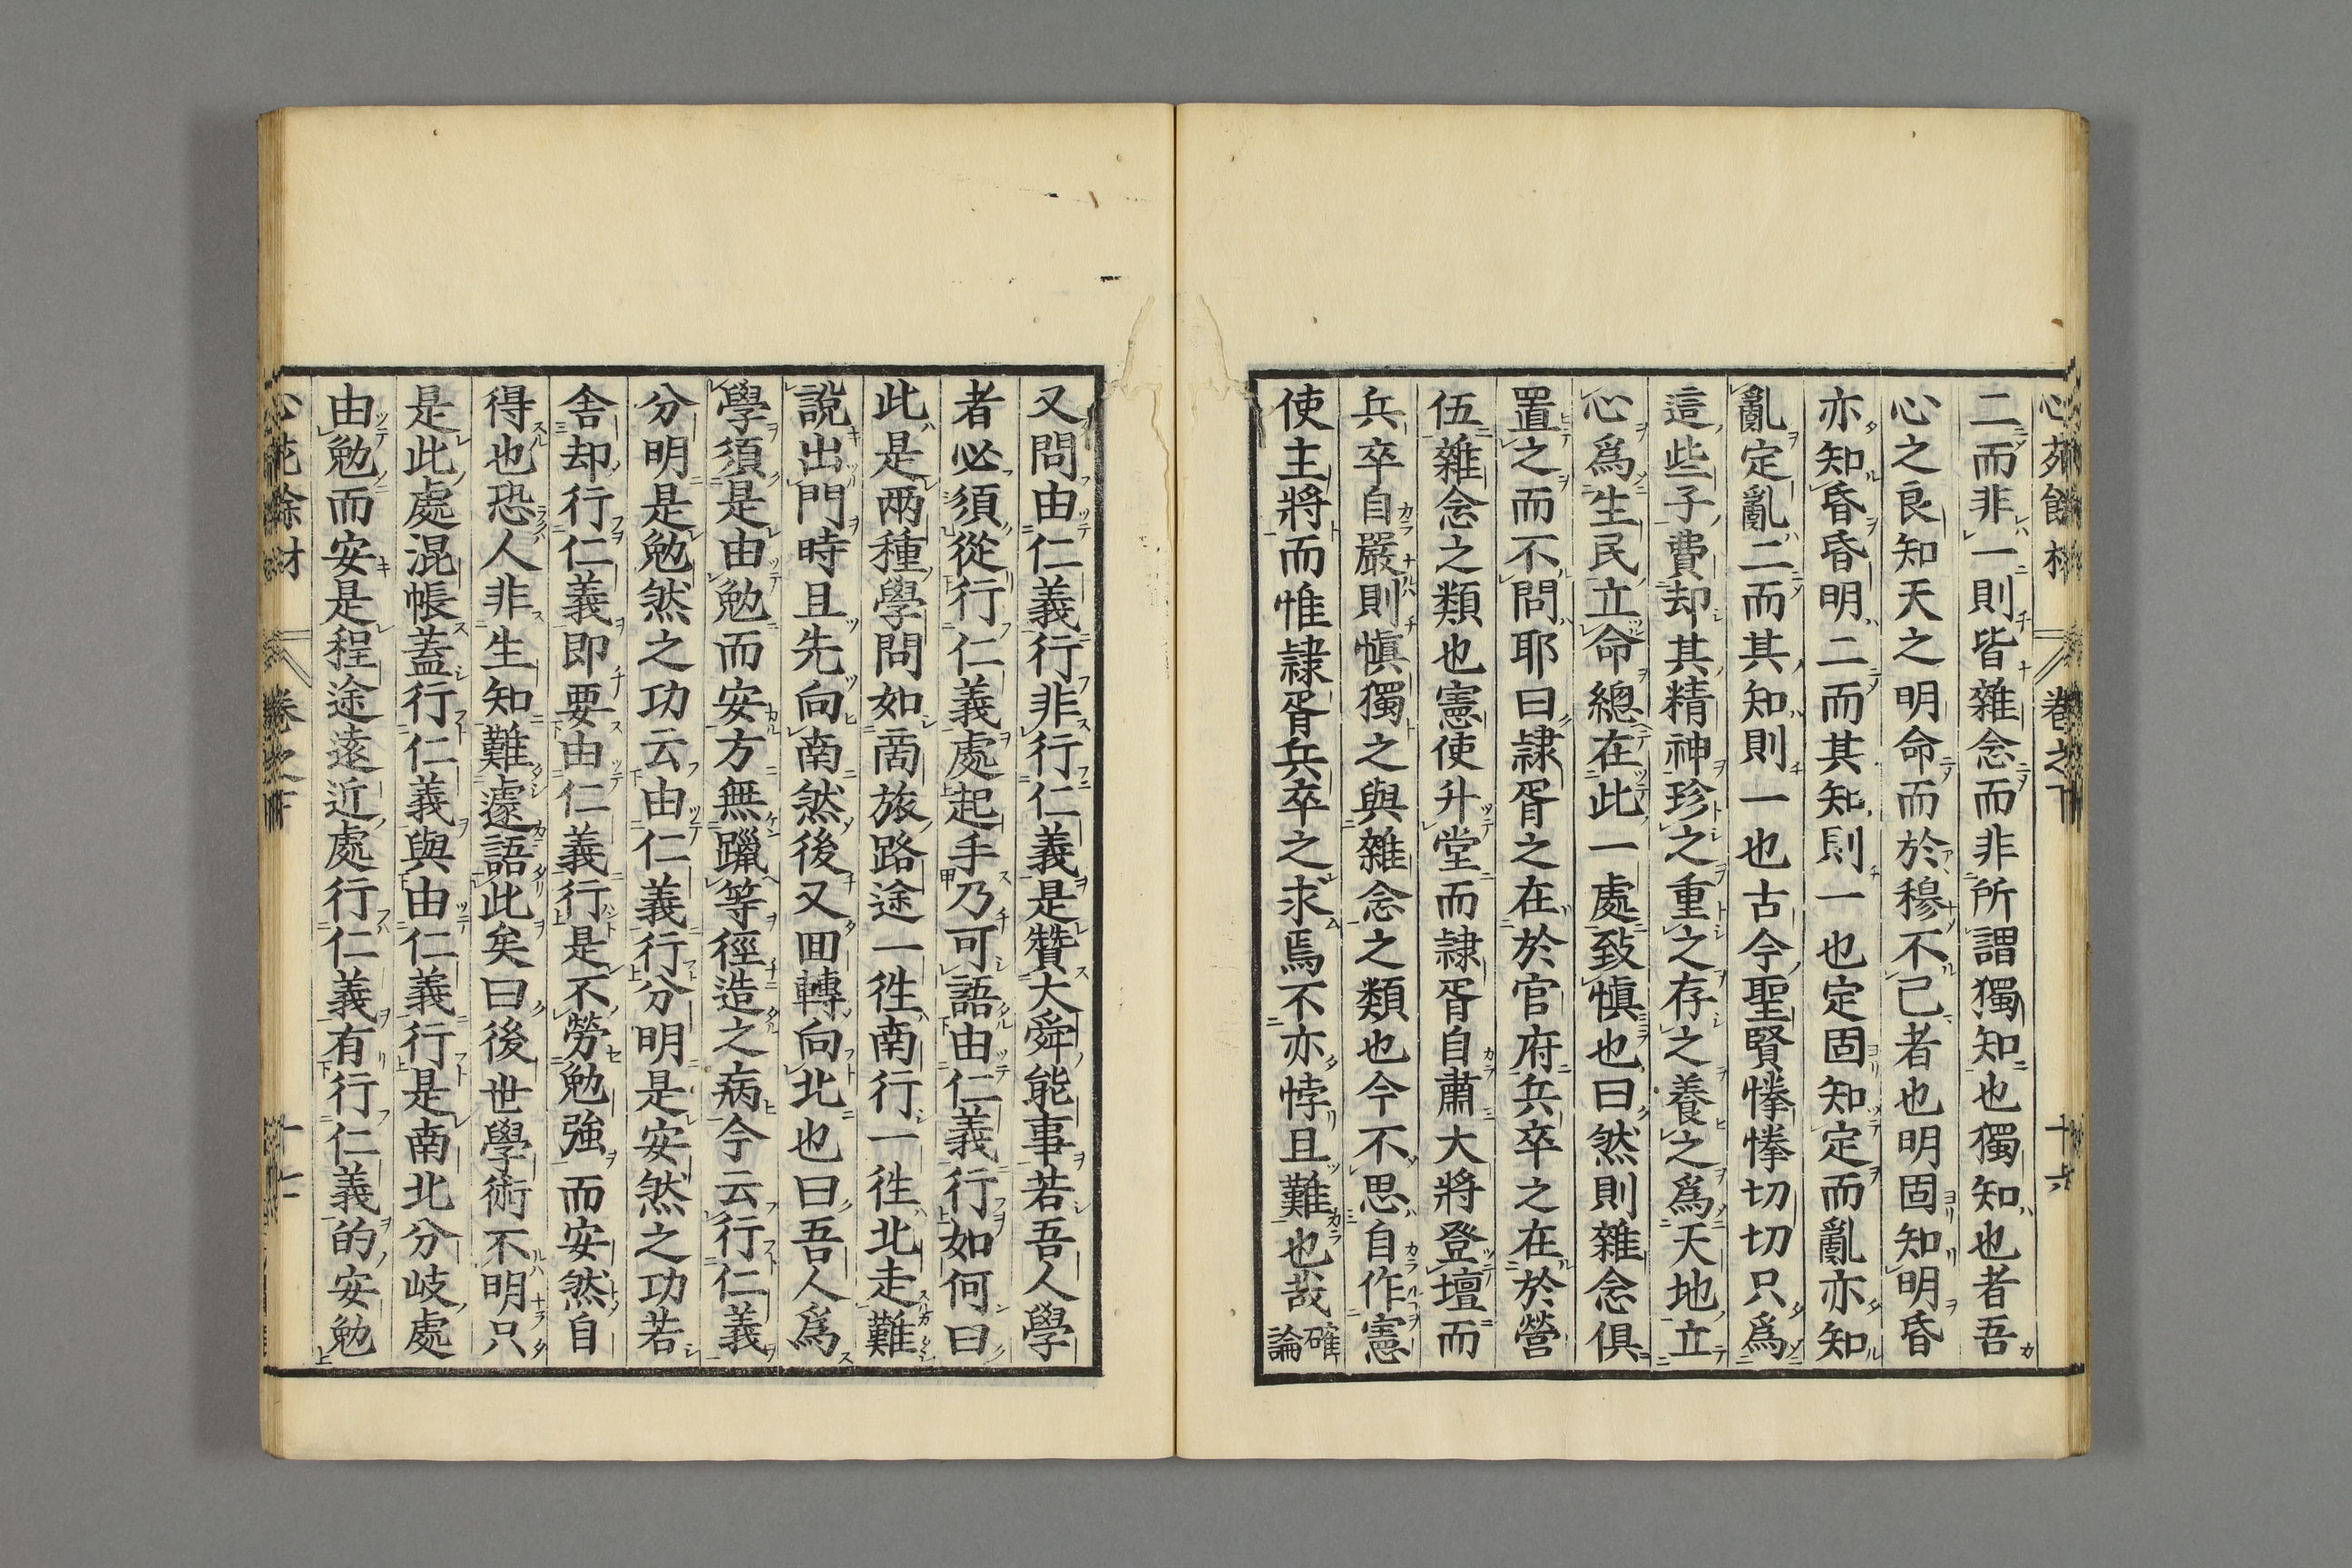 二而非一則皆雜念而非所謂獨知也獨知也者吾
心之良知天之明命而於穆不已者也明固知明昏
亦知昏昏明二而其知則一也定固知定而亂亦知
亂定亂二而其知則一也古今聖賢惓惓切切只爲
這些子費却其精神珍之重之存之養之爲天地立
心爲生民立命總在此一處致愼也曰然則雜念俱
置之而不問耶曰隷胥之在於官府兵卒之在於營
伍雜念之類也憲使升堂而隷胥自肅大將登壇而
兵卒自嚴則愼獨之與雜念之類也今不思自作憲
使主將而惟隷胥兵卒之求焉不亦悖且難也哉確論
又問由仁義行非行仁義是贊大舜能事若吾人學
者必須從行仁義處起手乃可語由仁義行如何曰
此是兩種學問如商旅路途一徃南行一徃北走難
說出門時且先向南然後又囬轉向北也曰吾人爲
學須是由勉而安方無躐等徑造之病今云行仁義
分明是勉然之功云由仁義行分明是安然之功若
舍却行仁義即要由仁義行是不勞勉強而安然自
得也恐人非生知難遽語此矣曰後世學術不明只
是此處混帳蓋行仁義與由仁義行是南北分岐處
由勉而安是程途遠近處行仁義有行仁義的安勉